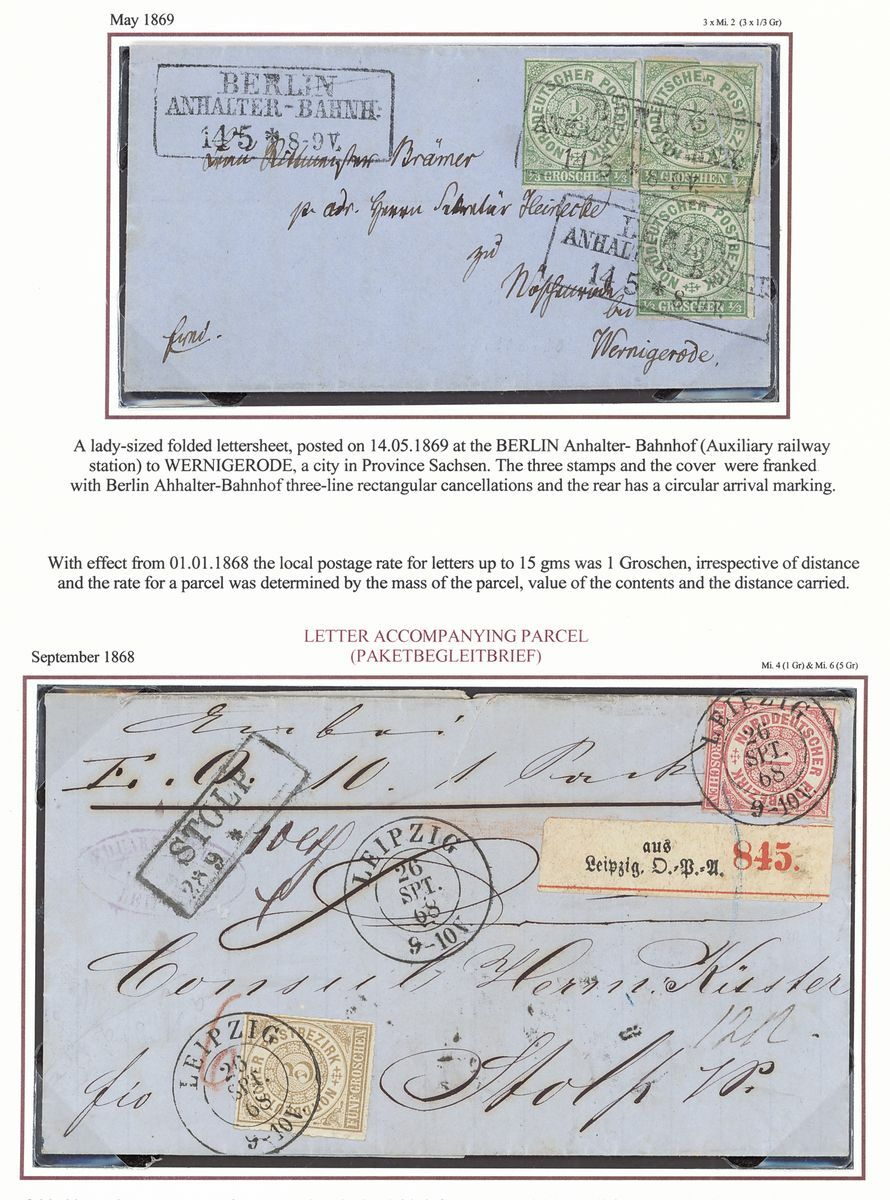 May 1869
3 x Mi. 2 (3 x 1/3 Gr)
BERLIN
ANHALTER-BAHNH.
14 5 * 8-9 V.
Brämer
p. adr. Herrn Sekretär Heinecke
zu
Nöschenrode
bei
Wernigerode.
frei.
NORDDEUTSCHER POSTBEZIRK
1/3
1/3 GROSCHEN 1/3
NORDDEUTSCHER POSTBEZIRK
1/3
GROSCHEN 1/3
NORDDEUTSCHER POSTBEZIRK
1/3
1/3 GROSCHEN 1/3
14 5 * 8-9 V.
ANHAL
14 5 *
A lady-sized folded lettersheet, posted on 14.05.1869 at the BERLIN Anhalter- Bahnhof (Auxiliary railway
station) to WERNIGERODE, a city in Province Sachsen. The three stamps and the cover were franked
with Berlin Ahhalter-Bahnhof three-line rectangular cancellations and the rear has a circular arrival marking.
With effect from 01.01.1868 the local postage rate for letters up to 15 gms was 1 Groschen, irrespective of distance
and the rate for a parcel was determined by the mass of the parcel, value of the contents and the distance carried.
LETTER ACCOMPANYING PARCEL
(PAKETBEGLEITBRIEF)
September 1868
Mi. 4 (1 Gr) & Mi. 6 (5 Gr)
Embei
10. 1 Pack
STOLP
28 9 *
LEIPZIG
26
SPT.
68
9-10V
NORDDEUTSCHER
1
GROSCHEN
aus
Leipzig. O.-P.-A. 845.
LEIPZIG
26
SPT.
68
9-10V
Consul Herrn Küster
Stolp
LEIPZIG
26
SPT.
68
9-10V
POSTBEZIRK
FÜNF GROSCHEN